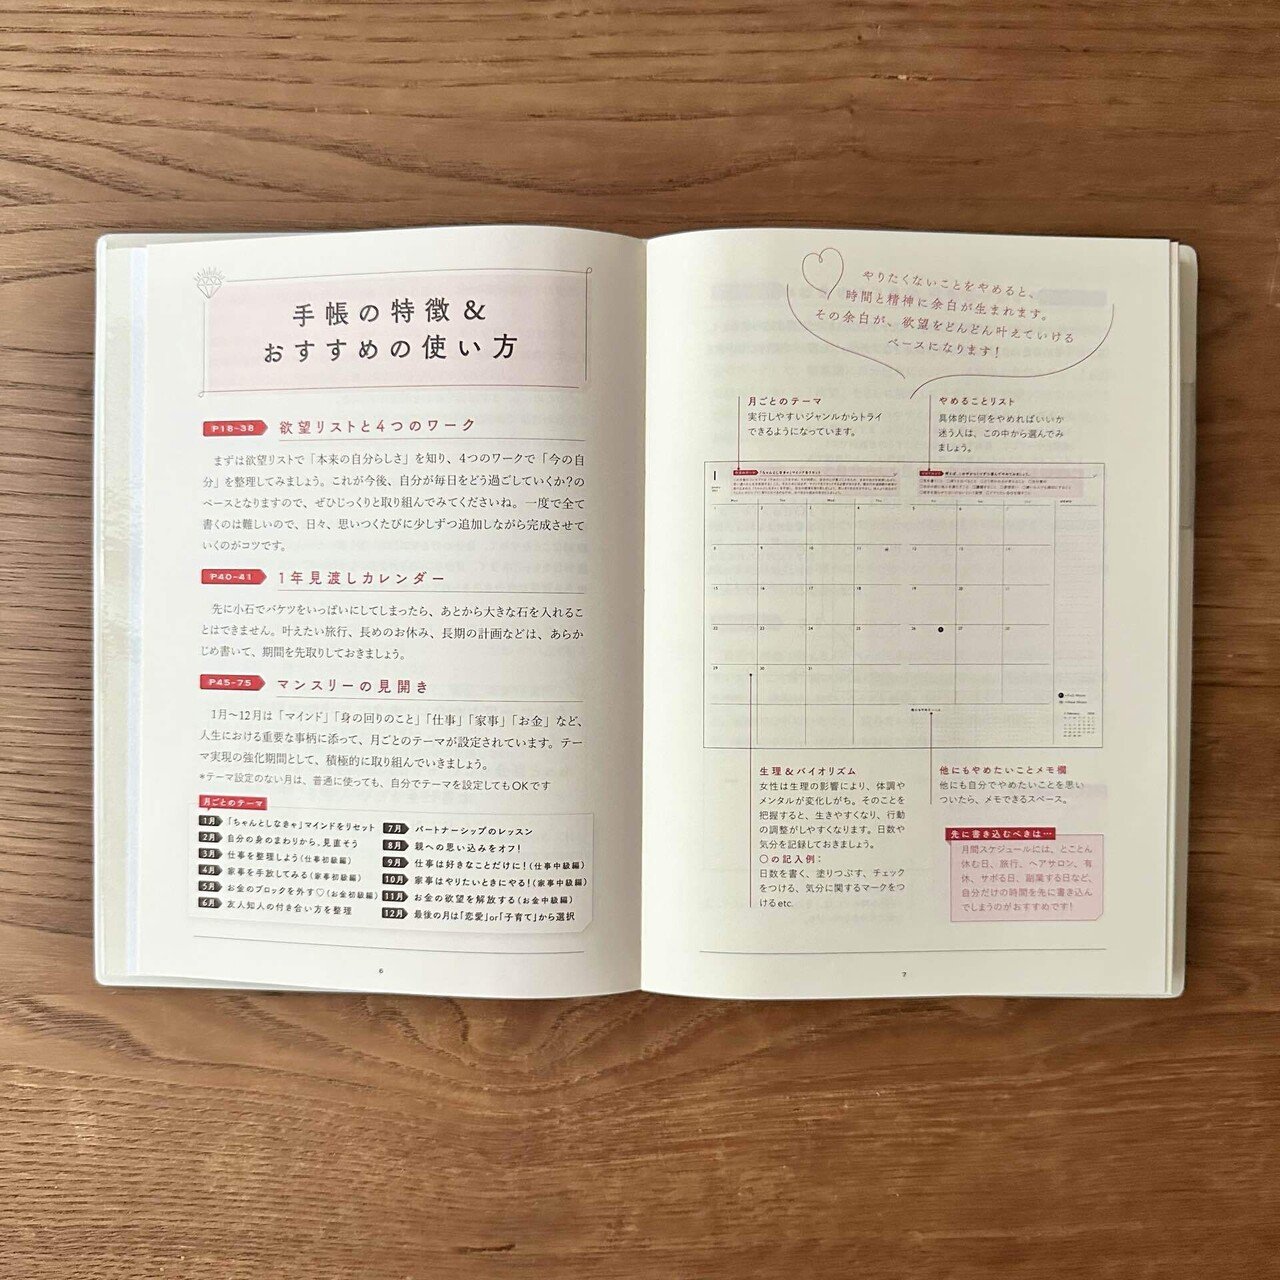 手帳の特徴&
おすすめの使い方
P18-38 欲望リストと4つのワーク
まずは欲望リストで「本来の自分らしさ」を知り、4つのワークで「今の自
分」を整理してみましょう。これが今後、自分が毎日をどう過ごしていくか?の
ベースとなりますので、ぜひじっくりと取り組んでみてくださいね。一度で全て
書くのは難しいので、日々、思いつくたびに少しずつ追加しながら完成させて
いくのがコツです。
P40-41 1年見渡しカレンダー
先に小石でバケツをいっぱいにしてしまったら、あとから大きな石を入れるこ
とはできません。叶えたい旅行、長めのお休み、長期の計画などは、あらか
じめ書いて、期間を先取りしておきましょう。
P45-75 マンスリーの見開き
1月〜12月は「マインド」「身の回りのこと」「仕事」「家事」「お金」など、
人生における重要な事柄に添って、月ごとのテーマが設定されています。テー
マ実現の強化期間として、積極的に取り組んでいきましょう。
*テーマ設定のない月は、普通に使っても、自分でテーマを設定してもOKです
月ごとのテーマ
1月 「ちゃんとしなきゃ」マインドをリセット
2月 自分の身のまわりから、見直そう
3月 仕事を整理しよう(仕事初級編)
4月 家事を手放してみる(家事初級編)
5月 お金のブロックを外す♡(お金初級編)
6月 友人知人の付き合い方を整理
7月 パートナーシップのレッスン
8月 親への思い込みをオフ!
9月 仕事は好きなことだけに!(仕事中級編)
10月 家事はやりたいときにやる!(家事中級編)
11月 お金の欲望を解放する(お金中級編)
12月 最後の月は「恋愛」or「子育て」から選択
6
やりたくないことをやめると、
時間と精神に余白が生まれます。
その余白が、欲望をどんどん叶えていける
ベースになります!
月ごとのテーマ
実行しやすいジャンルからトライ
できるようになっています。
やめることリスト
具体的に何をやめればいいか
迷う人は、この中から選んでみ
ましょう。
1
「ちゃんとしなきゃ」マインドをリセット
生理&バイオリズム
女性は生理の影響により、体調や
メンタルが変化しがち。そのことを
把握すると、生きやすくなり、行動
の調整がしやすくなります。日数や
気分を記録しておきましょう。
○の記入例:
日数を書く、塗りつぶす、チェック
をつける、気分に関するマークをつ
けるetc.
他にもやめたいことメモ欄
他にも自分でやめたいことを思い
ついたら、メモできるスペース。
先に書き込むべきは…
月間スケジュールには、とことん
休む日、旅行、ヘアサロン、有
休、サボる日、副業する日など、
自分だけの時間を先に書き込ん
でしまうのがおすすめです!
7